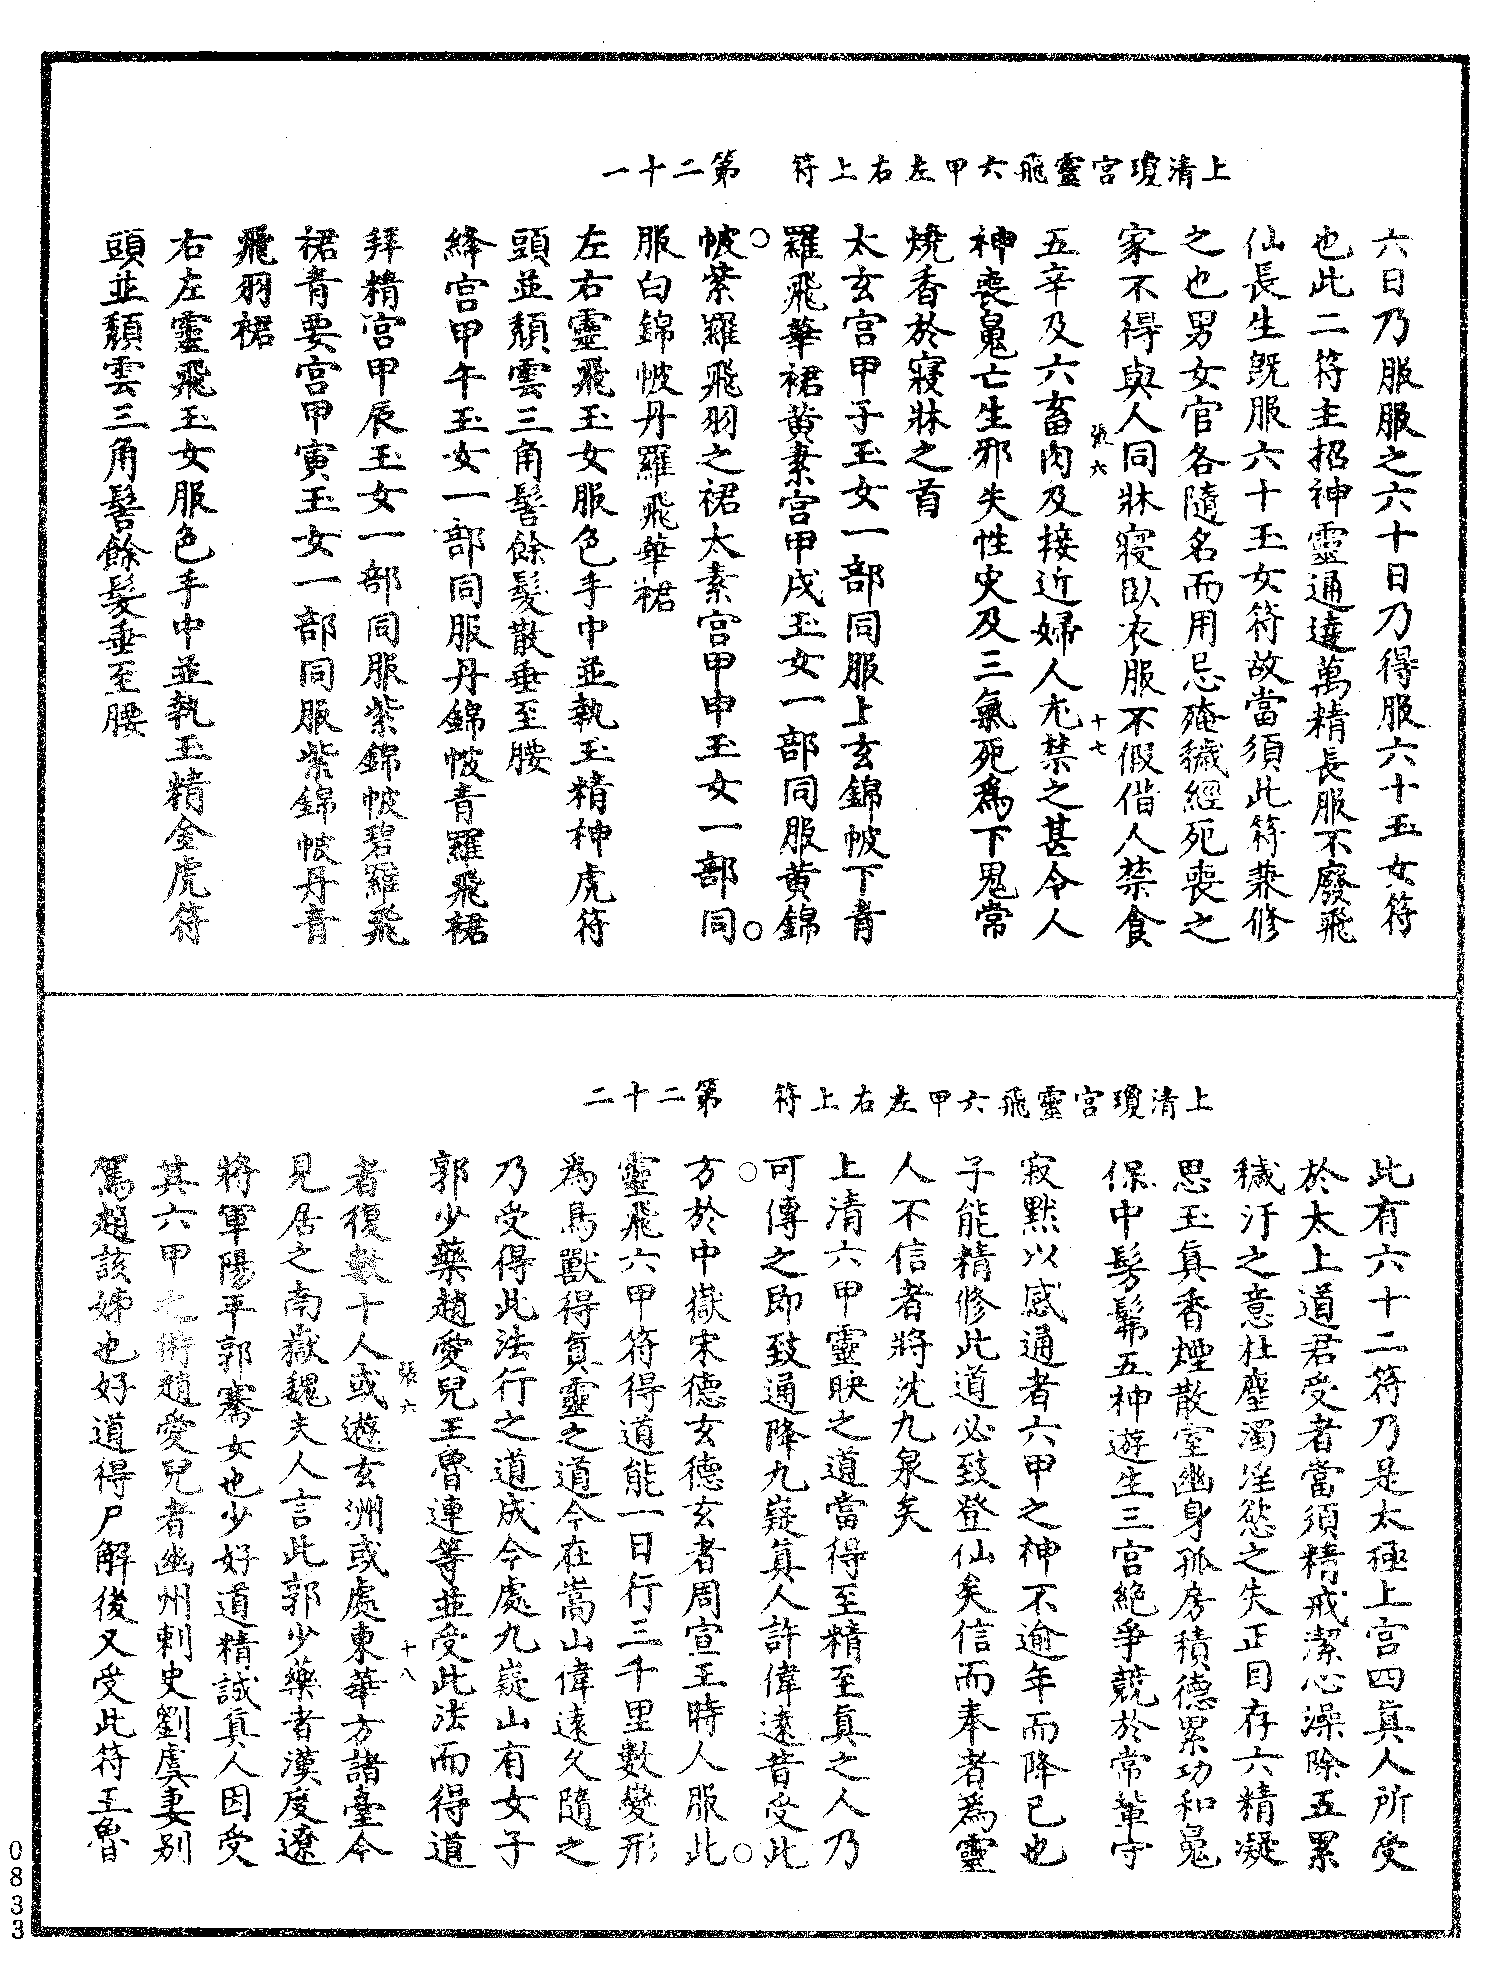 上清瓊宮靈飛六甲左右上符　第二十一
六日乃服服之六十日乃得服六十玉女符
也此二符主招神靈通達萬精長服不廢飛
仙長生既服六十玉女符故當須此符兼修
之也男女官各隨名而用忌殗穢經死喪之
家不得與人同牀寢臥衣服不假借人禁食
張六　十七
五辛及六畜肉及接近婦人尤禁之甚令人
神喪鬼亡生邪失性灾及三氣死為下鬼常
燒香於寢牀之首
太玄宮甲子玉女一部同服上玄錦帔下青
羅飛華裙黃素宮甲戌玉女一部同服黃錦
帔紫羅飛羽之裙太素宮甲申玉女一部同
服白錦帔丹羅飛華裙
左右靈飛玉女服色手中並執玉精神虎符
頭並頹雲三角髻餘髮散垂至腰
絳宮甲午玉女一部同服丹錦帔青羅飛裙
拜精宮甲辰玉女一部同服紫錦帔碧羅飛
裙青要宮甲寅玉女一部同服紫錦帔丹青
飛羽裙
右左靈飛玉女服色手中並執玉精金虎符
頭並頹雲三角髻餘髮垂至腰
上清瓊宮靈飛六甲左右上符　第二十二
此有六十二符乃是太極上宮四真人所受
於太上道君受者當須精戒潔心澡除五累
穢汙之意杜塵濁淫慾之失正目存六精凝
思玉真香煙散室幽身孤房積德累功和鬼
保中髣髴五神遊生三宮絕爭競於常輩守
寂默以感通者六甲之神不逾年而降已也
子能精修此道必致登仙矣信而奉者為靈
人不信者將沈九泉矣
上清六甲靈映之道當得至精至真之人乃
可傳之即致通降九嶷真人許偉遠昔受此
方於中嶽宋德玄德玄者周宣王時人服此
靈飛六甲符得道能一日行三千里數變形
為鳥獸得真靈之道今在嵩山偉遠久隨之
乃受得此法行之道成今處九嶷山有女子
郭少藥趙愛兒王魯連等並受此法而得道
張六　十八
者復數十人或遊玄洲或處東華方諸臺今
見居之南嶽魏夫人言此郭少藥者漢度遼
將軍陽平郭騫女也少好道精誠真人因受
其六甲之術趙愛兒者幽州刺史劉虞妻別
駕趙該姊也好道得尸解後又受此符王魯
0833